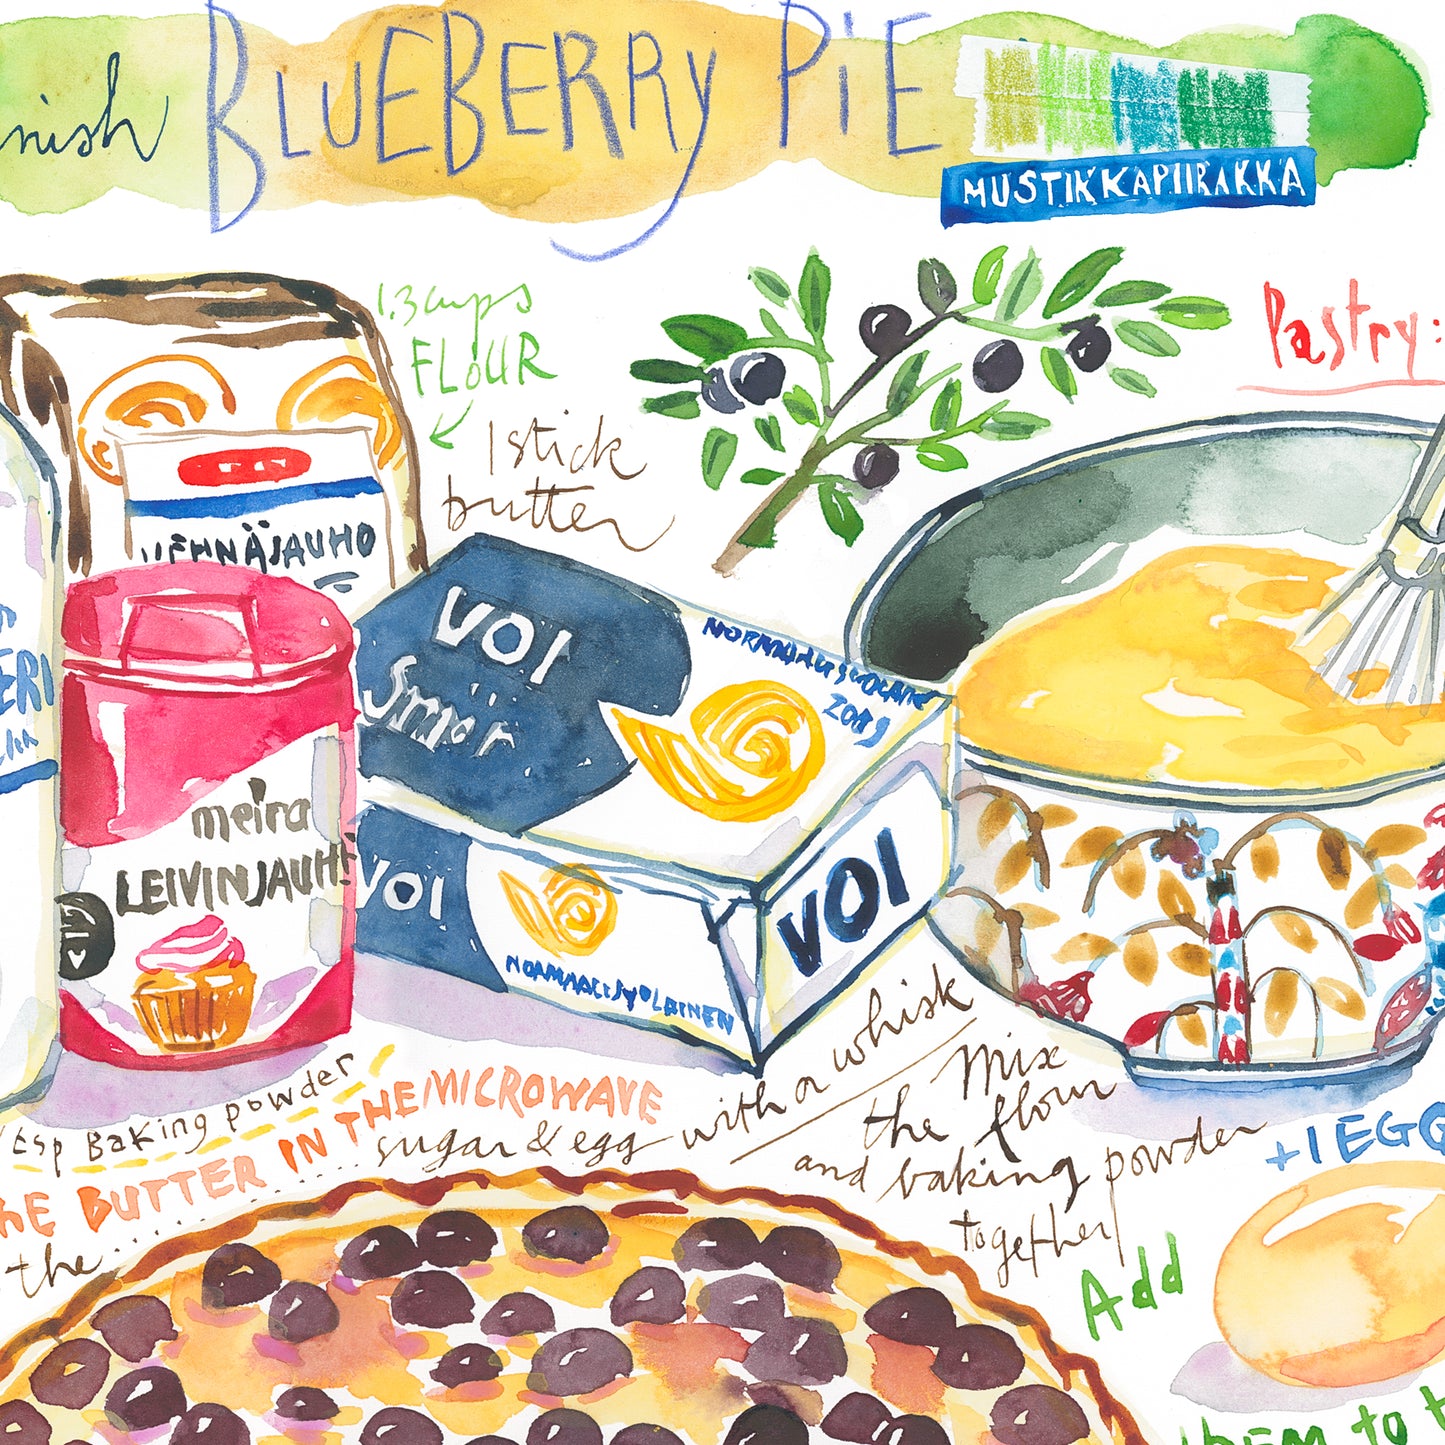 nish BLUEBERRY PIE
MUSTIKKAPIIRAKKA
1.3 cups
FLOUR
Pastry:
1 stick
butter
VEHNÄJAUHO
VOI
Smör
200 g
ERI
meira
LEIVINJAUHE
VOI
VOI
tsp Baking powder
HE BUTTER IN THE MICROWAVE
the... sugar & egg with a whisk
Mix
the flour
and baking powder
together
+1 EGG
Add
them to t